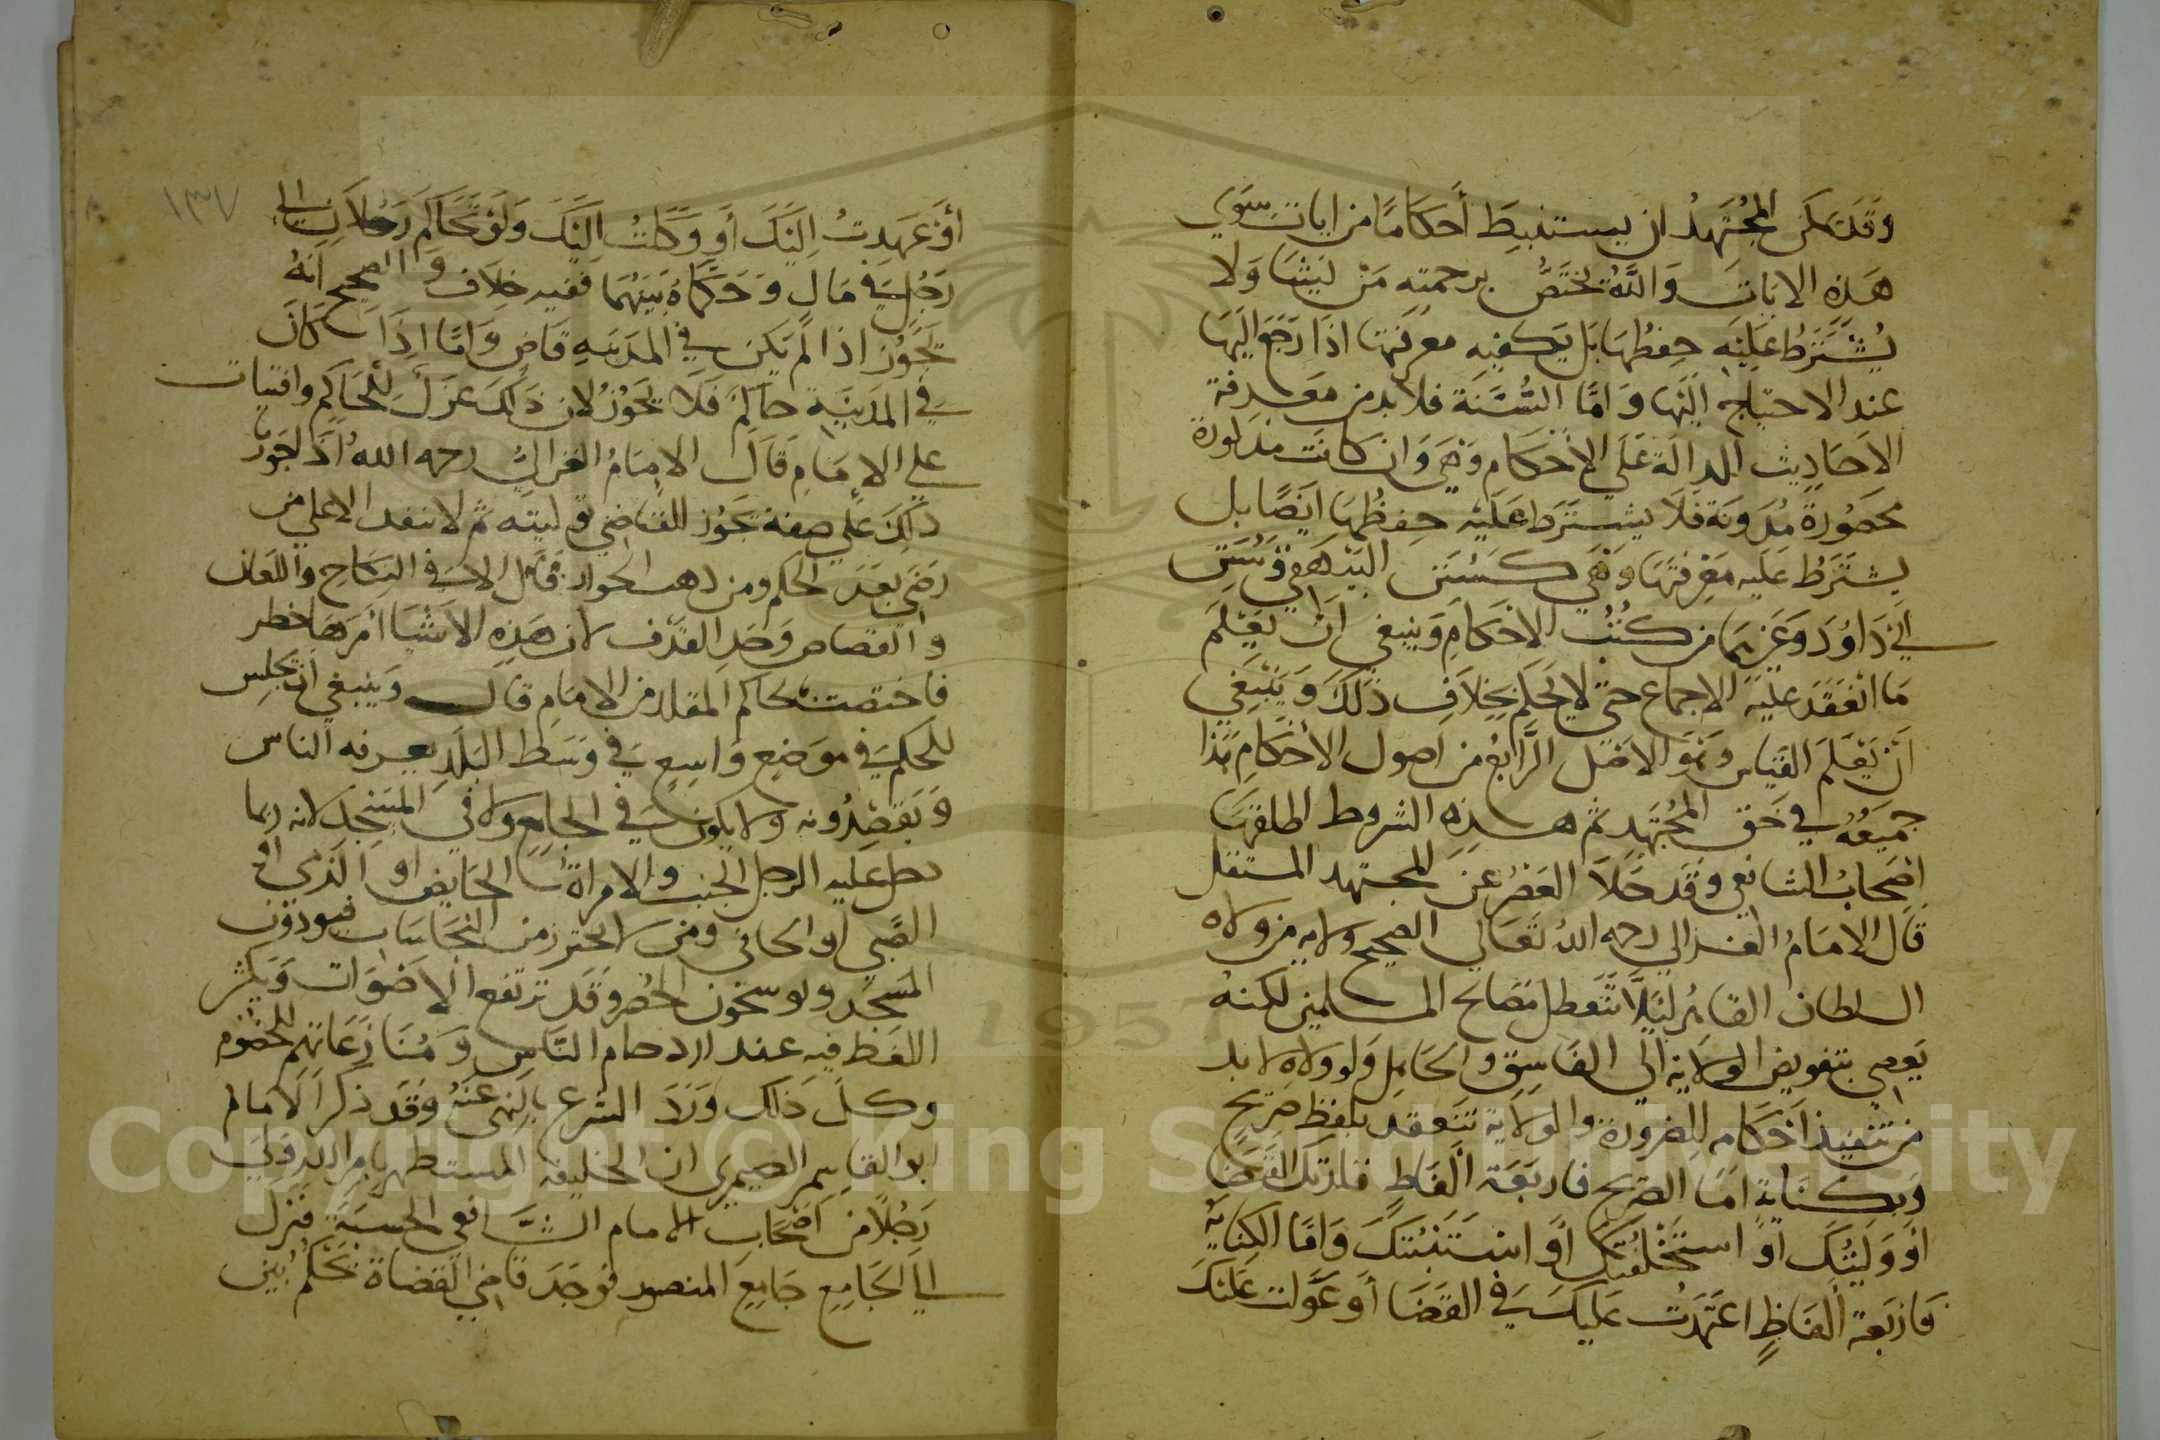 وقد يمكن المجتهد ان يستنبط أحكاما من ايات سوي
هذه الايات والله يختص برحمته من يشا ولا
يشترط عليه حفظها بل يكفيه معرفتها اذا رجع اليها
عند الاحتياج اليها واما السنة فلا بد من معرفة
الاحاديث الدالة علي الاحكام وهي وان كانت
محصورة مدونة فلا يشترط عليه حفظها ايضا بل
يشترط عليه معرفتها وهي كسنن البيهقي وسنن
ابي داود وغيرهما من كتب الاحكام وينبغي ان يعلم
ما انعقد عليه الاجماع حتي لا يحكم بخلاف ذلك وينبغي
أن يعلم القياس وهو الاصل الرابع من اصول الأحكام هذا
جميعه في حق المجتهد ثم هذه الشروط اطلقها
اصحاب الشافعي وقد خلا العصر عن المجتهد المستقل
قال الامام الغزالي رحمه الله تعالي الصحيح ولايه من ولاه
السلطان القاهر ليلا تتعطل مصالح المسلمين لكنه
يعصي بتفويض الولاية الي الفاسق والجاهل ولو ولاه لا بد
من تنفيذ احكامه للضرورة والولاية تنعقد بلفظ صريح
وبكناية اما الصريح فاربعة الفاظ قلدتك القضا
أو وليتك او استخلفتك أو استنبتك واما الكناية
فاربعة الفاظ اعتمدت عليك في القضا أو عولت عليك
١٣٧
أو عهدت اليك أو وكلت اليك ولو تحاكم رجلان الي
رجل في مال وحكماه بينهما ففيه خلاف والصحيح انه
يجوز اذا لم يكن في المدينه قاض واما اذا كان
في المدينة حاكم فلا يجوز لان ذلك عزل للحاكم وافتيات
علي الامام قال الامام الغزالي رحمه الله اذا جوز
ذلك علي صفة تجوز للقاضي توليته ثم لا ينفد الا علي من
رضي بعد الحكم ومن ذهب الجواز قال الا في النكاح واللعان
والقصاص وحد القذف لان هذه الاشيا امرها خطر
فاختصت بحاكم المقلد من الامام قال وينبغي ان يجلس
للحكم في موضع واسع في وسط البلد يعرفه الناس
ويقصدونه ولا يكون في الجامع ولا في المسجد لانه ربما
دخل عليه الرجل الجنب والامراة الحايض او الذمي او
الصبي او الحافي ومن لا يحترز من النجاسات فيودون
المسجد ويوسخون الحصر وقد ترتفع الاصوات ويكثر
اللغط فيه عند ازدحام الناس ومنازعاتهم للخصوم
وكل ذلك ورد الشرع بالنهي عنه وقد ذكر الامام
ابو القاسم الصيمري ان الخليفه المستظهر بامر الله ولي
رجلا من اصحاب الامام الشافعي الحسبة فنزل
الي الجامع جامع المنصور فوجد قاضي القضاة يحكم بين